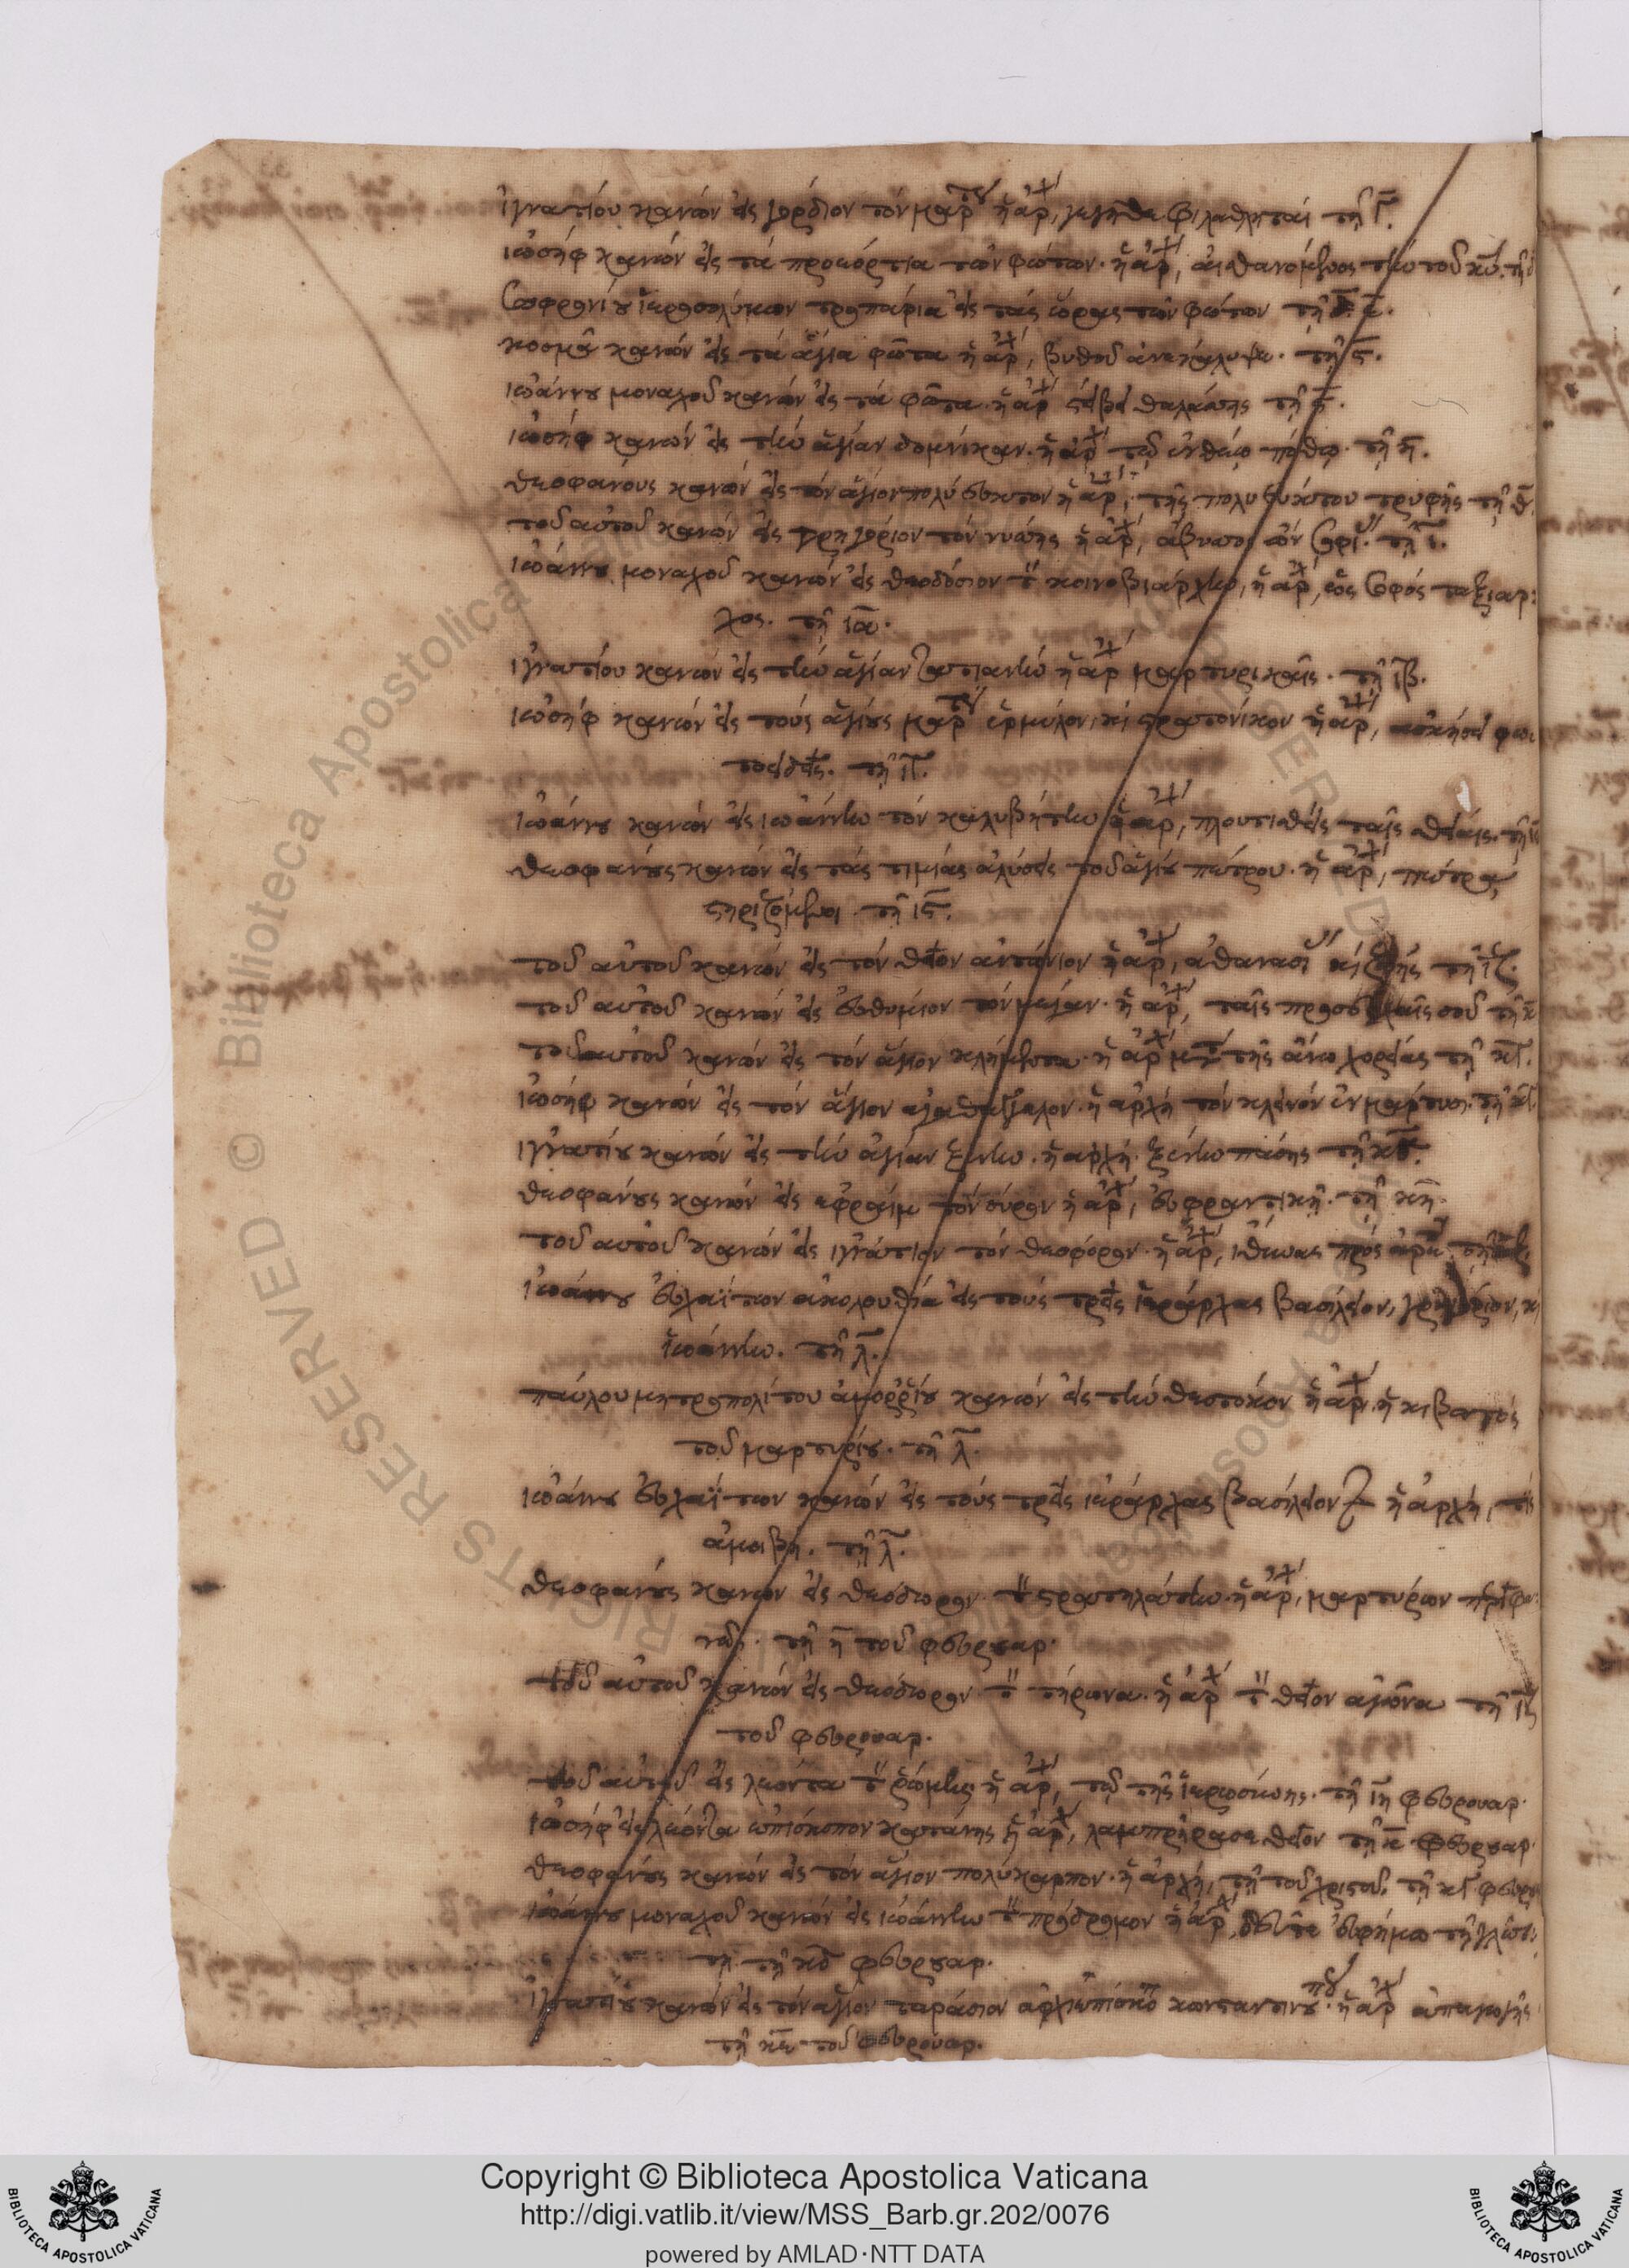 ἰγνατίου κανών εἰς γόρδιον τόν μάρτυ ἡ ἀρχ, γεγηθε φιλαθληταί τῇ γ.
ἰωσήφ κανών εἰς τά προεόρτια τῶν φώτων· ἡ ἀρχ, τήν τοῦ
σωφρονίου ἱεροσολύμων τροπάρια εἰς τάς ὥρας τῶν φώτων τῇ ε.
κοσμᾶ κανών εἰς τά ἅγια φῶτα ἡ ἀρχ, βυθοῦ ἀνεκάλυψε· τῇ ς.
ἰωάννου μοναχοῦ κανών εἰς τά φῶτα· ἡ ἀρχ στείβει θαλάσσης τῇ ς.
ἰωσήφ κανών εἰς τήν ἁγίαν δομνίκαν· ἡ ἀρχ τῷ ἐνθέῳ πόθῳ· τῇ η.
θεοφάνους κανών εἰς τόν ἅγιον πολύευκτον ἡ ἀρχ, τῆς πολυευκτου τρυφῆς τῇ θ.
τοῦ αὐτοῦ κανών εἰς γρηγόριον τόν νύσσης ἡ ἀρχ, ἄβυσσος ὤν σοφί τῇ ι.
ἰωάννου μοναχοῦ κανών εἰς θεοδόσιον τ κοινοβιάρχην, ἡ ἀρχ, ὡς σοφός ταξιαρ:
χος. τῇ ια.
ἰγνατίου κανών εἰς τήν ἁγίαν τατιανήν ἡ ἀρχ μαρτυρικαῖς· τῇ ιβ.
ἰωσήφ κανών εἰς τούς ἁγίους μαρτυ ἑρμύλον, κ στρατόνικον ἡ ἀρχ, ἀσκήσει φω
τοειδεῖς. τῇ ιγ.
ἰωάννου κανών εἰς ἰωάννην τόν καλυβήτην ἡ ἀρχ, πλουτισθείς ταῖς θείαις.
θεοφάνους κανών εἰς τάς τιμίας ἁλύσεις τοῦ ἁγίου πέτρου· ἡ ἀρχ, πέτρᾳ
στηριζόμενοι· τῇ ις.
τοῦ αὐτοῦ κανών εἰς τόν θεῖον ἀντώνιον ἡ ἀρχ, ἀθανασί τῇ ιζ.
τοῦ αὐτοῦ κανών εἰς εὐθύμιον τόν μέγαν· ἡ ἀρχ, ταῖς προσευχαῖς σοῦ τῇ κ
τοῦ αὐτοῦ κανών εἰς τόν ἅγιον κλήμεντα· ἡ ἀρχ μετ τῆς ἄνω χορείας τῇ κγ.
ἰωσήφ κανών εἰς τόν ἅγιον ἀγαθάγγελον· ἡ ἀρχή τόν κλεινόν ἐν μάρτυσι· τῇ κγ.
ἰγνατίου κανών εἰς τήν ἁγίαν ξένην· ἡ ἀρχή· ξένην πάσης τῇ κδ.
θεοφάνους κανών εἰς ἐφραίμ τόν σύρον ἡ ἀρχ, εὐφραντικῇ· τῇ κη.
τοῦ αὐτοῦ κανών εἰς ἰγνάτιον τόν θεοφόρον· ἡ ἀρχ, ἰθύνας πρός
ἰωάννου εὐχαΐτων ἀκολουθία εἰς τούς τρεῖς ἱεράρχας βασίλειον, γρηγόριον, κ
ἰωάννην. τῇ λ.
παύλου μητροπολίτου ἀμορρίου κανών εἰς τήν θεοτόκον ἡ ἀρχ, ἡ κιβωτός
τοῦ μαρτυρίου· τῇ λ.
ἰωάννου εὐχαΐτων κανών εἰς τούς τρεῖς ἱεράρχας βασίλειον ἡ ἀρχή, τίς
ἀμοιβή. τῇ λ.
θεοφάνους κανών εἰς θεόδωρον τ στρατηλάτην· ἡ ἀρχ, μαρτύρων
νῷ· τῇ η τοῦ φευρουαρ·
τοῦ αὐτοῦ κανών εἰς θεόδωρον τ τήρωνα· ἡ ἀρχ τ θεῖον ἀγῶνα τῇ ιζ
τοῦ φευρουαρ.
τοῦ αὐτοῦ εἰς λέοντα τ ῥώμης ἡ ἀρχ, τῷ τῆς ἱερωσύνης· τῇ ιη φευρουαρ.
ἰωσήφ εἰς λέοντα ἐπίσκοπον κατάνης ἡ ἀρχ, θεῖον τῇ κ φευρουαρ.
θεοφάνους κανών εἰς τόν ἅγιον πολύκαρπον· ἡ ἀρχή, τῇ τοῦ χριστοῦ. τῇ κγ φευρου
ἰωάννου μοναχοῦ κανών εἰς ἰωάννην τ πρόδρομον ἡ ἀρχ, δεῦτε εὐφήμῳ τῇ γλώσ:
τη τῇ κδ φευρουαρ.
ἰγνατίου κανών εἰς τόν ἅγιον ταράσιον ἀρχιεπίσκο κωνσταντινουπο· ἡ ἀρχ ἀπαγωγῆς
τῇ κε τοῦ φευρουαρ.
Copyright © Biblioteca Apostolica Vaticana
http://digi.vatlib.it/view/MSS_Barb.gr.202/0076
powered by AMLAD·NTT DATA